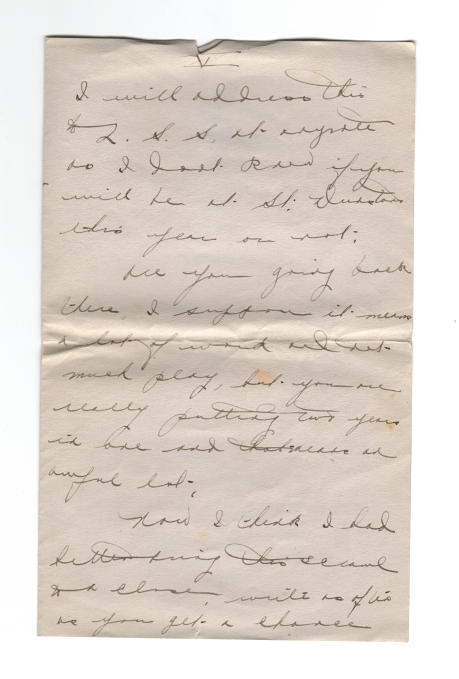 V
I will address this
to L. S. S. at anyrate
as I dont know if you
will be at St. Dunstans
this year or not.
Are you going back
there. I suppose it means
a lot of work and not
much play, but you are
really putting two years
in one and that means an
awful lot.
Now I think I had
better bring this scrawl
to a close, write as often
as you get a chance